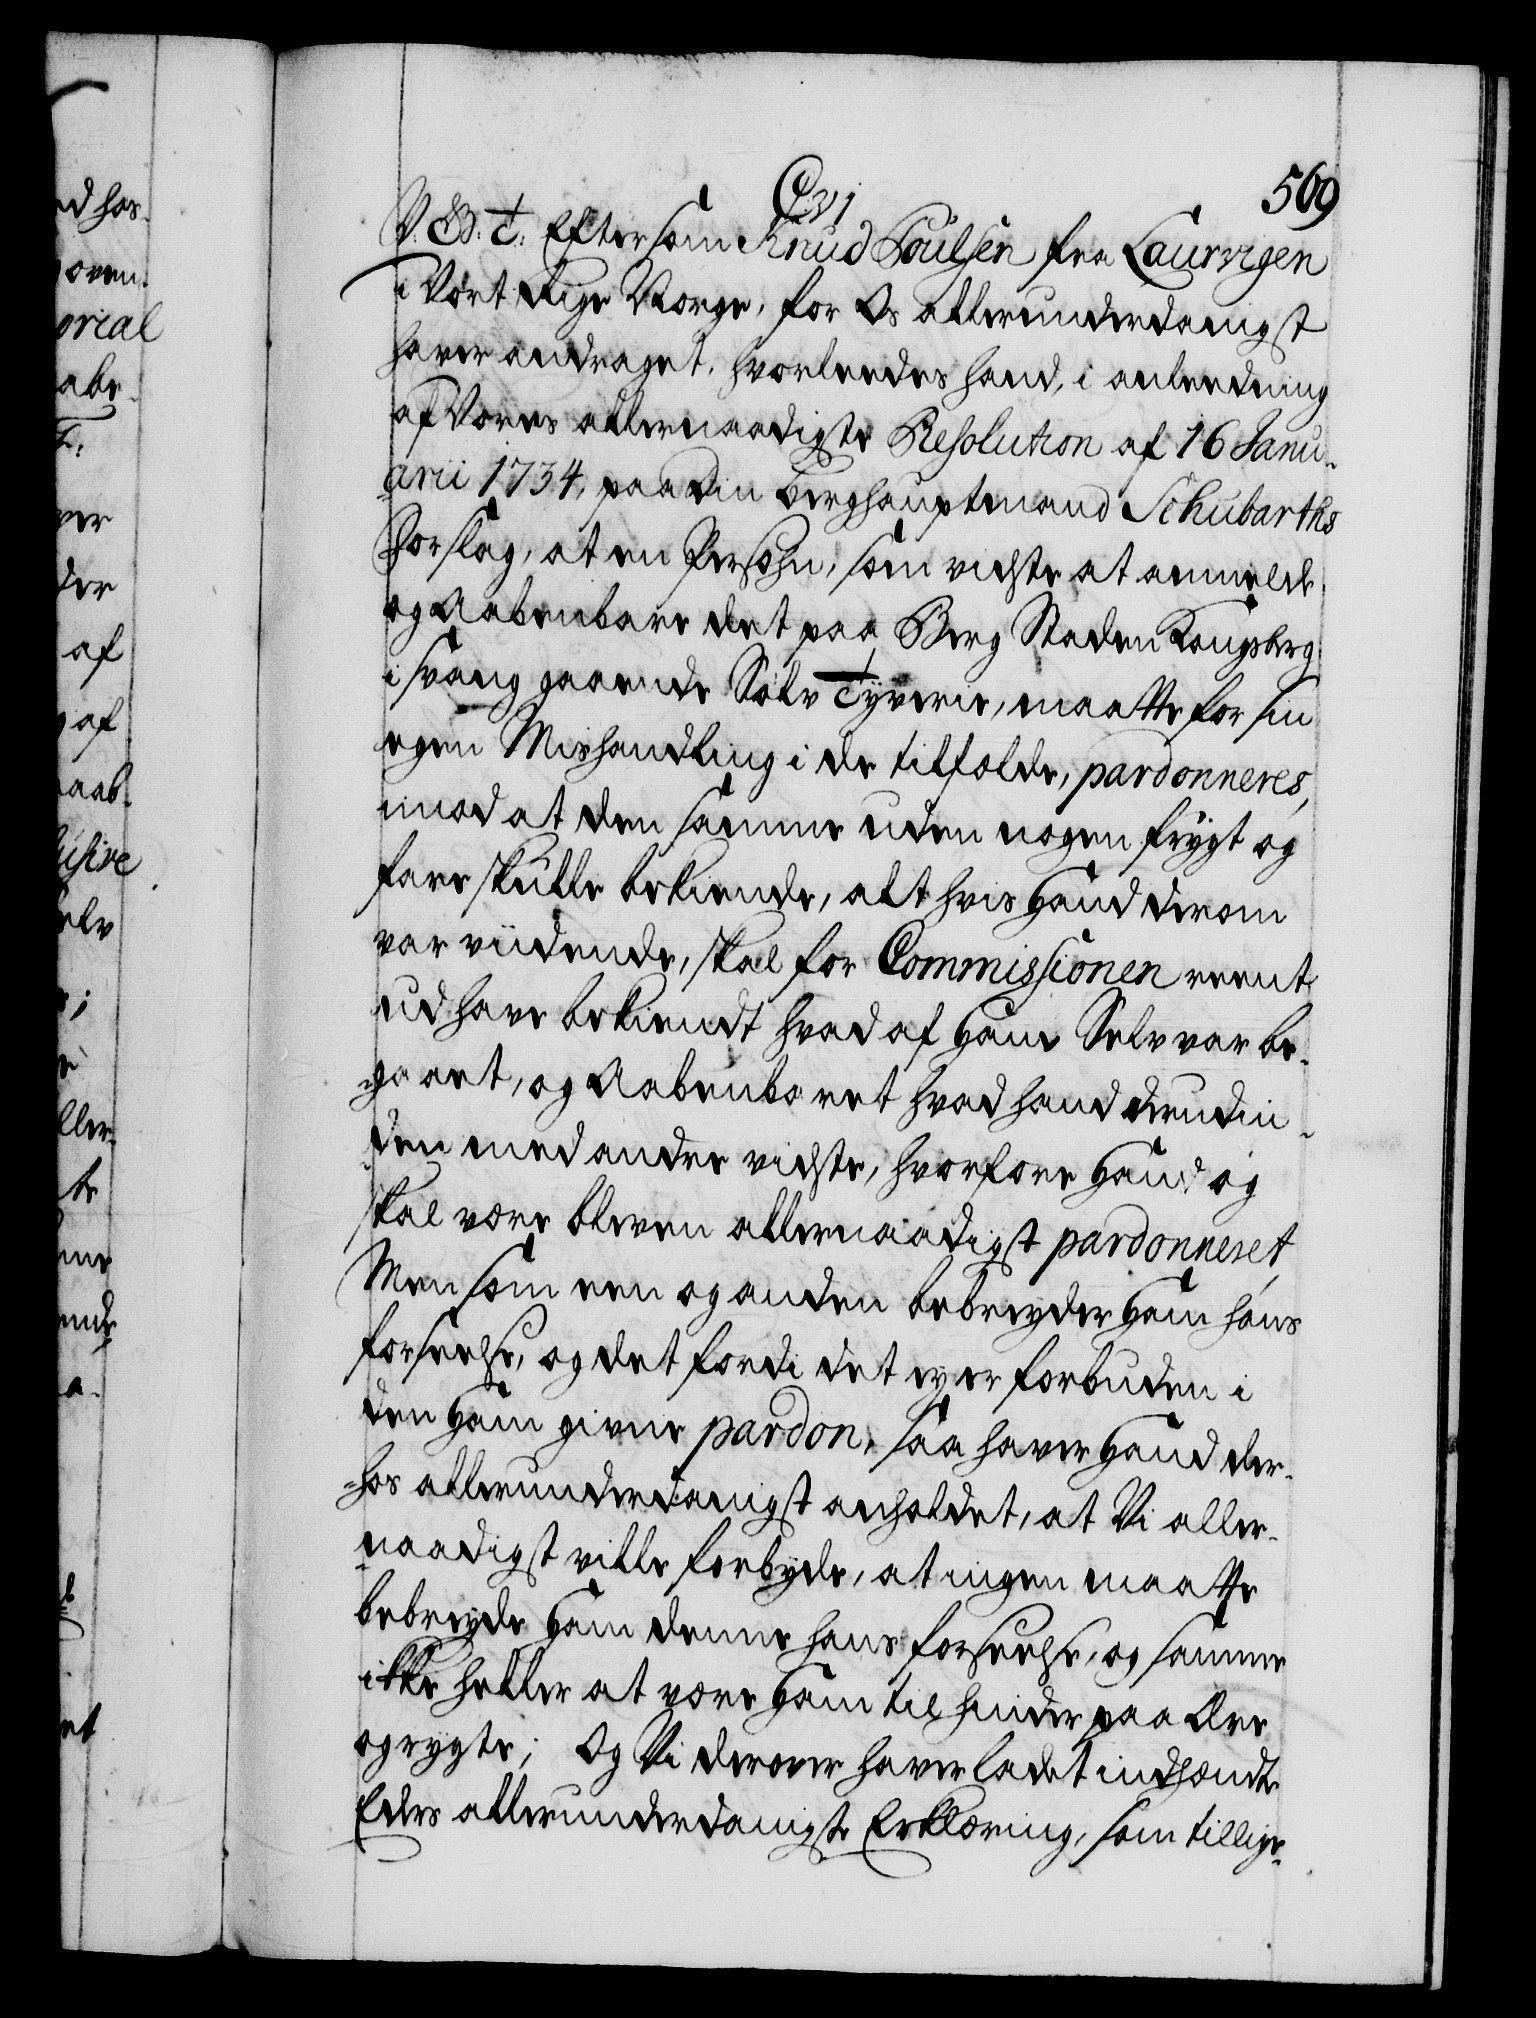 569
V. G. T: Eftersom Knud Poulsen fra Laurvigen
i Vort Rige Norge, for Os allerunderdanigst
haver andraget, hvorleedes hand, i anleedning
af Vores allernaadigste Resolution af 16 Janu-
arii 1734, paa din Berghauptmand Schubarths
Forslag, at en Persohn, som vidste at anmelde
og Aabenbare det paa Berg Staden Kongsberg
i svang gaaende Sølv Tyverie, maatte for sin
egen Mishandling i de tilfælde, pardonneres,
imod at den samme uden nogen frygt og
fare skulle bekiende, alt hvis Hand derom
var viidende, skal for Commissionen reent
ud have bekiendt hvad af Ham Selv var be-
gaaet, og Aabenbaret hvad hand derudin-
den med andre vidste, hvorfore Hand og
skal være bleven allernaadigst pardonneret,
Men som een og anden bebreyder Ham hans
forseelse, og det fordi det ey er forbuden i
den Ham givne pardon, saa haver Hand der-
hos allerunderdanigst anholdet, at Vi aller-
naadigst ville forbyde, at ingen maatte
bebreyde Ham denne hans forseelse, og samme
ikke heller at være Ham til hinder paa Ære
og rygte; Og Vi derover haver ladet indhændte
Eders allerunderdanigste Erklæring, som tillige-